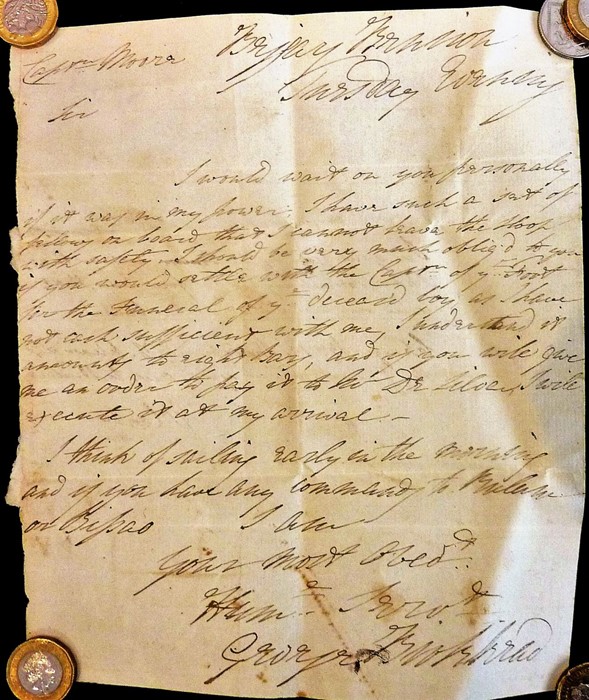 Capt.n Moore
Tuesday Evening
Sir
I would wait on you personally
if it was in my power, I have such a sett of
fellows on board that I cannot leave the Sloop
with safety. I should be very much oblig'd to you
if you would settle with the Capt.n of y.e Fort
for the Funeral of y.e deceas'd boy as I have
not cash sufficient with me, I understand it
amounts to eight Bars, and if you will give
me an order to pay it to M.r De Silva, I will
execute it at my arrival. –
I think of sailing early in the morning
and if you have any commands to Bulam
or Bissao I am
Your most Obed.t
Hum.e Serv.t
George